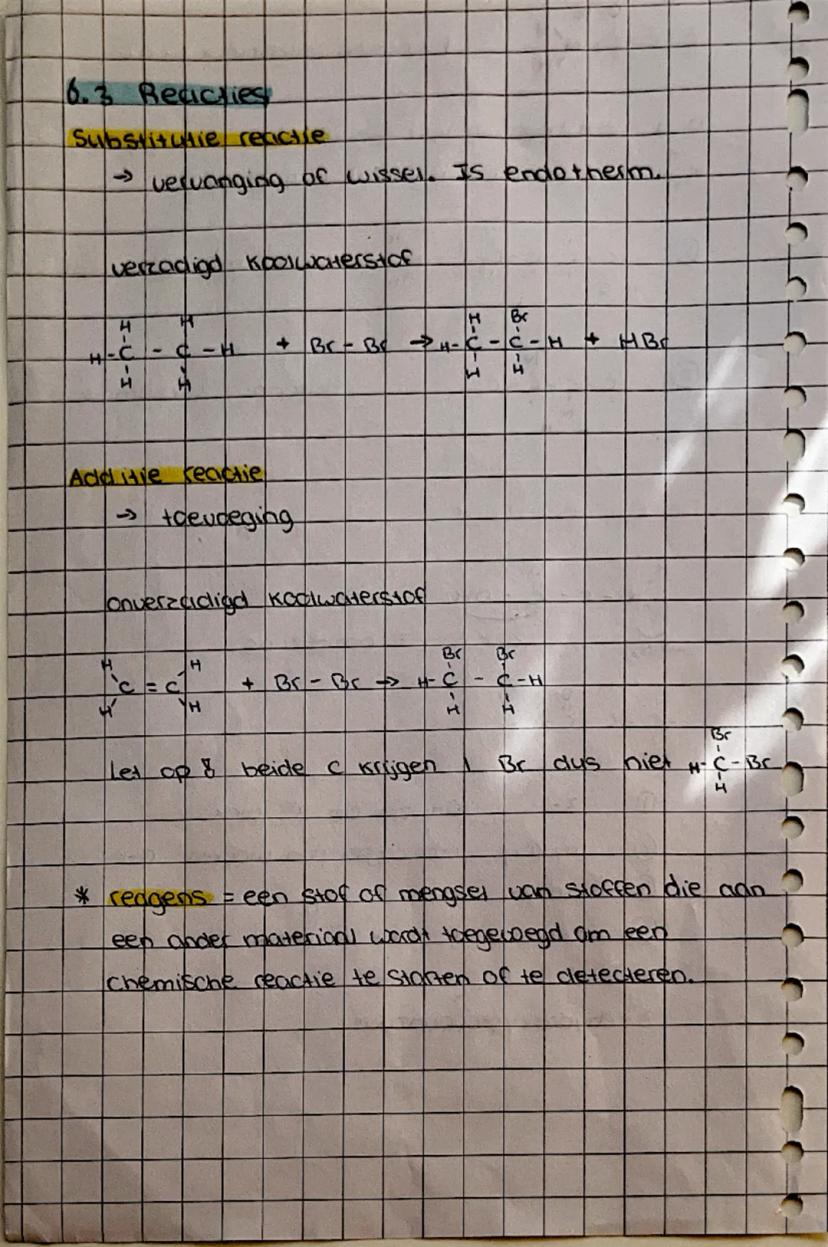 6.3 Reacties
Substitutie reactie
→ vervanging of wissel. Is endotherm.
verzadigd koolwaterstof
H H H Br
H-C - C-H + Br-Br → H-C-C-H + HBr
H H H H
Additie reactie
→ toevoeging
onverzadigd koolwaterstof
H H Br Br
C=C + Br-Br → H-C - C-H
H H H H
Br
Let op 8 beide C krijgen 1 Br dus niet H-C-Br
H
* reagens = een stof of mengsel van stoffen die aan
een ander materiaal wordt toegevoegd om een
chemische reactie te starten of te detecteren.